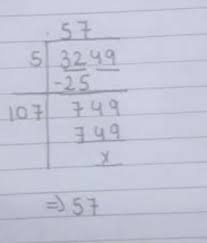 57
5 3249
-25
107 749
749
x
=> 57